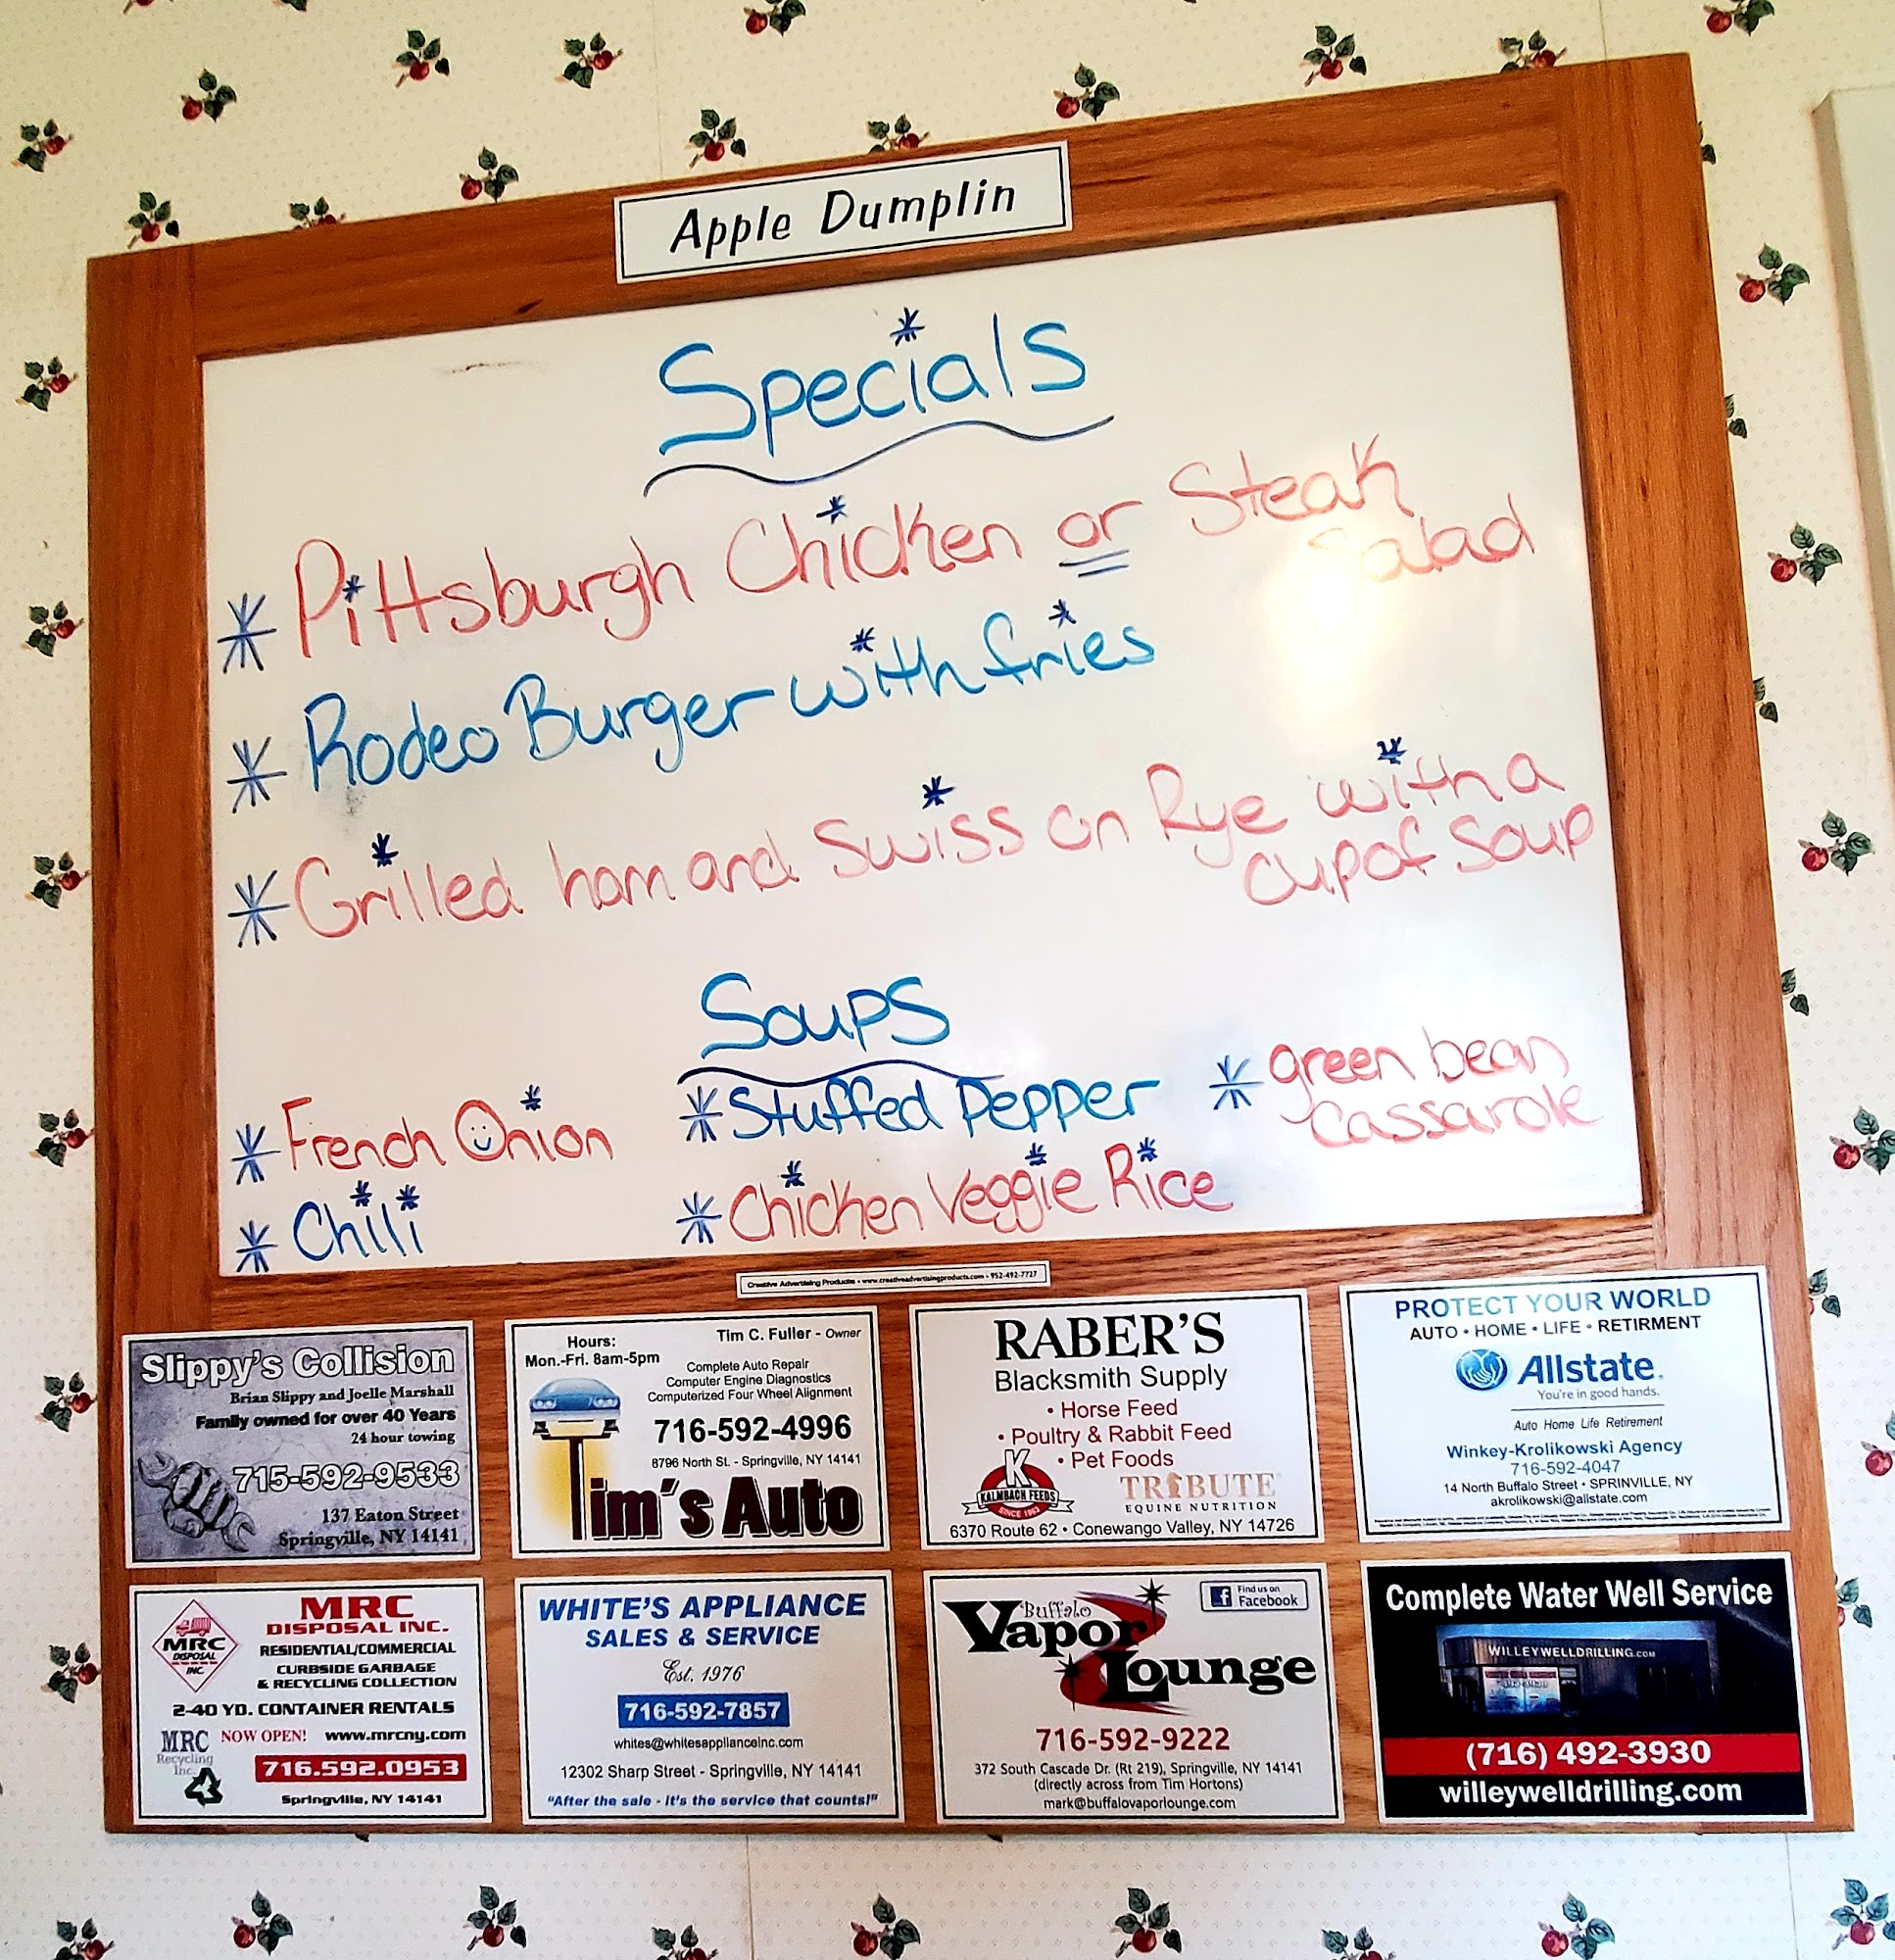 Apple Dumplin
Specials
* Pittsburgh Chicken or Steak
Salad
* Rodeo Burger with fries
* Grilled ham and Swiss on Rye with a
cup of Soup
Soups
* French Onion
* Chili
* Stuffed Pepper
* Chicken Veggie Rice
* green bean
Cassarole
Creative Advertising Products • www.creativeadvertisingproducts.com • 952-492-7727
Slippy's Collision
Brian Slippy and Joelle Marshall
Family owned for over 40 Years
24 hour towing
715-592-9533
137 Eaton Street
Springville, NY 14141
Hours:
Mon.-Fri. 8am-5pm
Tim C. Fuller - Owner
Complete Auto Repair
Computer Engine Diagnostics
Computerized Four Wheel Alignment
716-592-4996
8796 North St. - Springville, NY 14141
Tim's Auto
RABER'S
Blacksmith Supply
• Horse Feed
• Poultry & Rabbit Feed
• Pet Foods
K
KALMBACH FEEDS
SINCE 1963
TRIBUTE
EQUINE NUTRITION
6370 Route 62 • Conewango Valley, NY 14726
PROTECT YOUR WORLD
AUTO • HOME • LIFE • RETIRMENT
Allstate.
You're in good hands.
Auto Home Life Retirement
Winkey-Krolikowski Agency
716-592-4047
14 North Buffalo Street • SPRINVILLE, NY
akrolikowski@allstate.com
MRC
DISPOSAL
INC.
MRC
DISPOSAL INC.
RESIDENTIAL/COMMERCIAL
CURBSIDE GARBAGE
& RECYCLING COLLECTION
2-40 YD. CONTAINER RENTALS
MRC
Recycling
Inc.
NOW OPEN! www.mrcny.com
716.592.0953
Springville, NY 14141
WHITE'S APPLIANCE
SALES & SERVICE
Est. 1976
716-592-7857
whites@whitesapplianceinc.com
12302 Sharp Street - Springville, NY 14141
"After the sale - it's the service that counts!"
Find us on
Facebook
Buffalo
Vapor
Lounge
716-592-9222
372 South Cascade Dr. (Rt 219), Springville, NY 14141
(directly across from Tim Hortons)
mark@buffalovaporlounge.com
Complete Water Well Service
WILLEYWELLDRILLING.COM
(716) 492-3930
willeywelldrilling.com